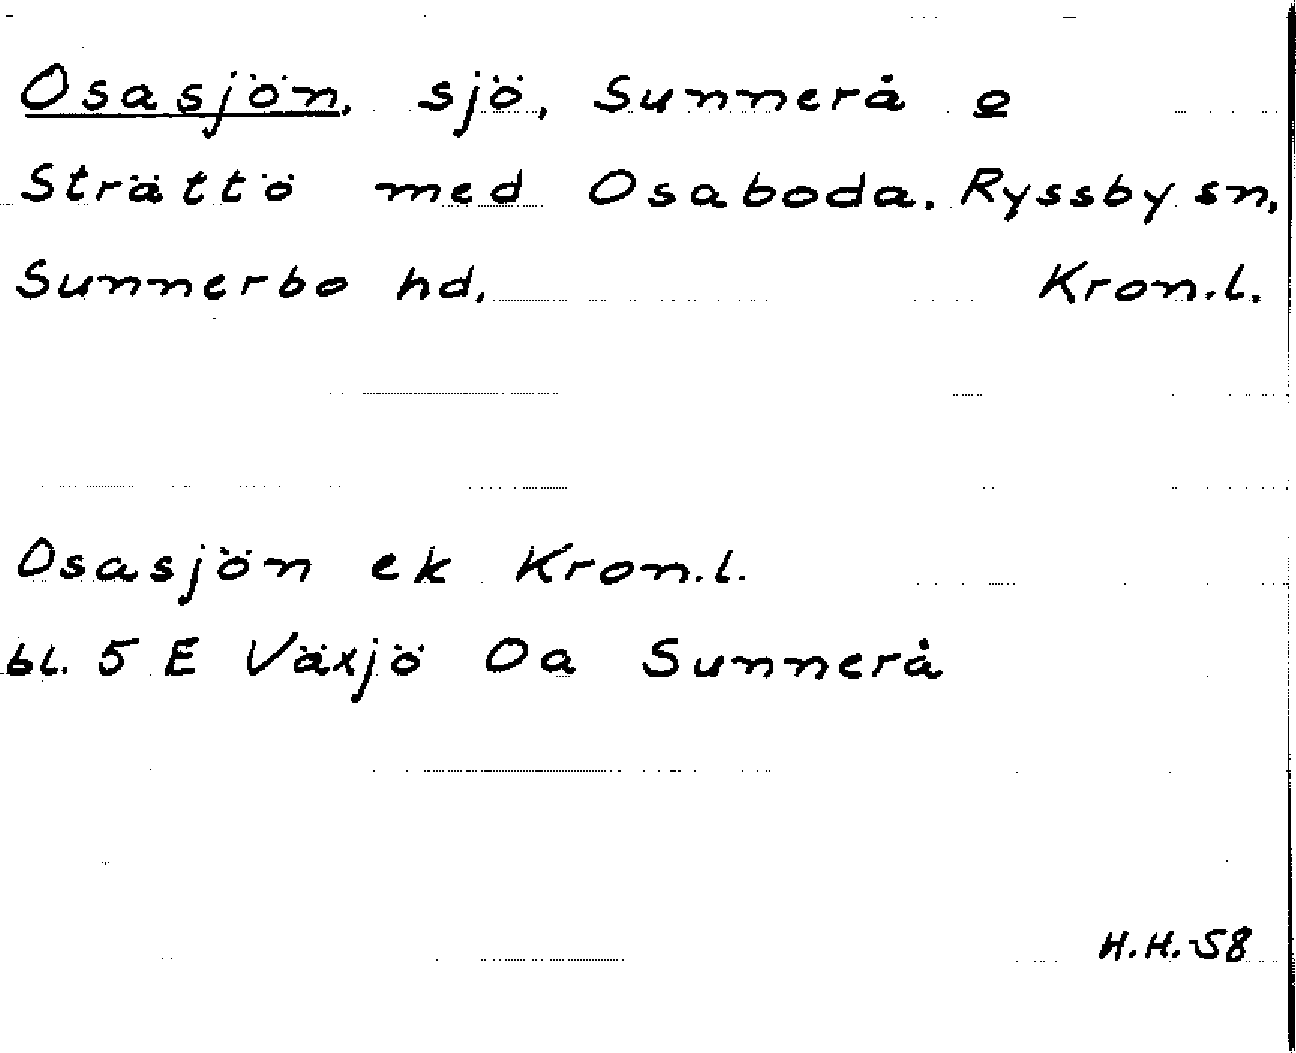 Osasjön, sjö, Sunnerå o
Strättö med Osaboda. Ryssby sn,
Sunnerbo hd, Kron.l.
Osasjön ek Kron.l.
bl. 5 E Växjö Oa Sunnerå
H.H.-58